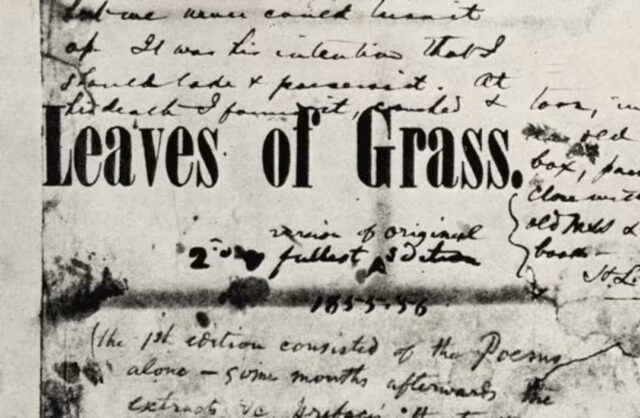 but we never could turn it
up It was his intention that I
should take & possess it. At
his death I found it, crushed & torn, in
an old
box, 
close with
old Mss &
books
Leaves of Grass.
version of original
2nd fullest Edition
1855-56
(the 1st edition consisted of the Poems
alone – some months afterwards the
extracts &c prefaced